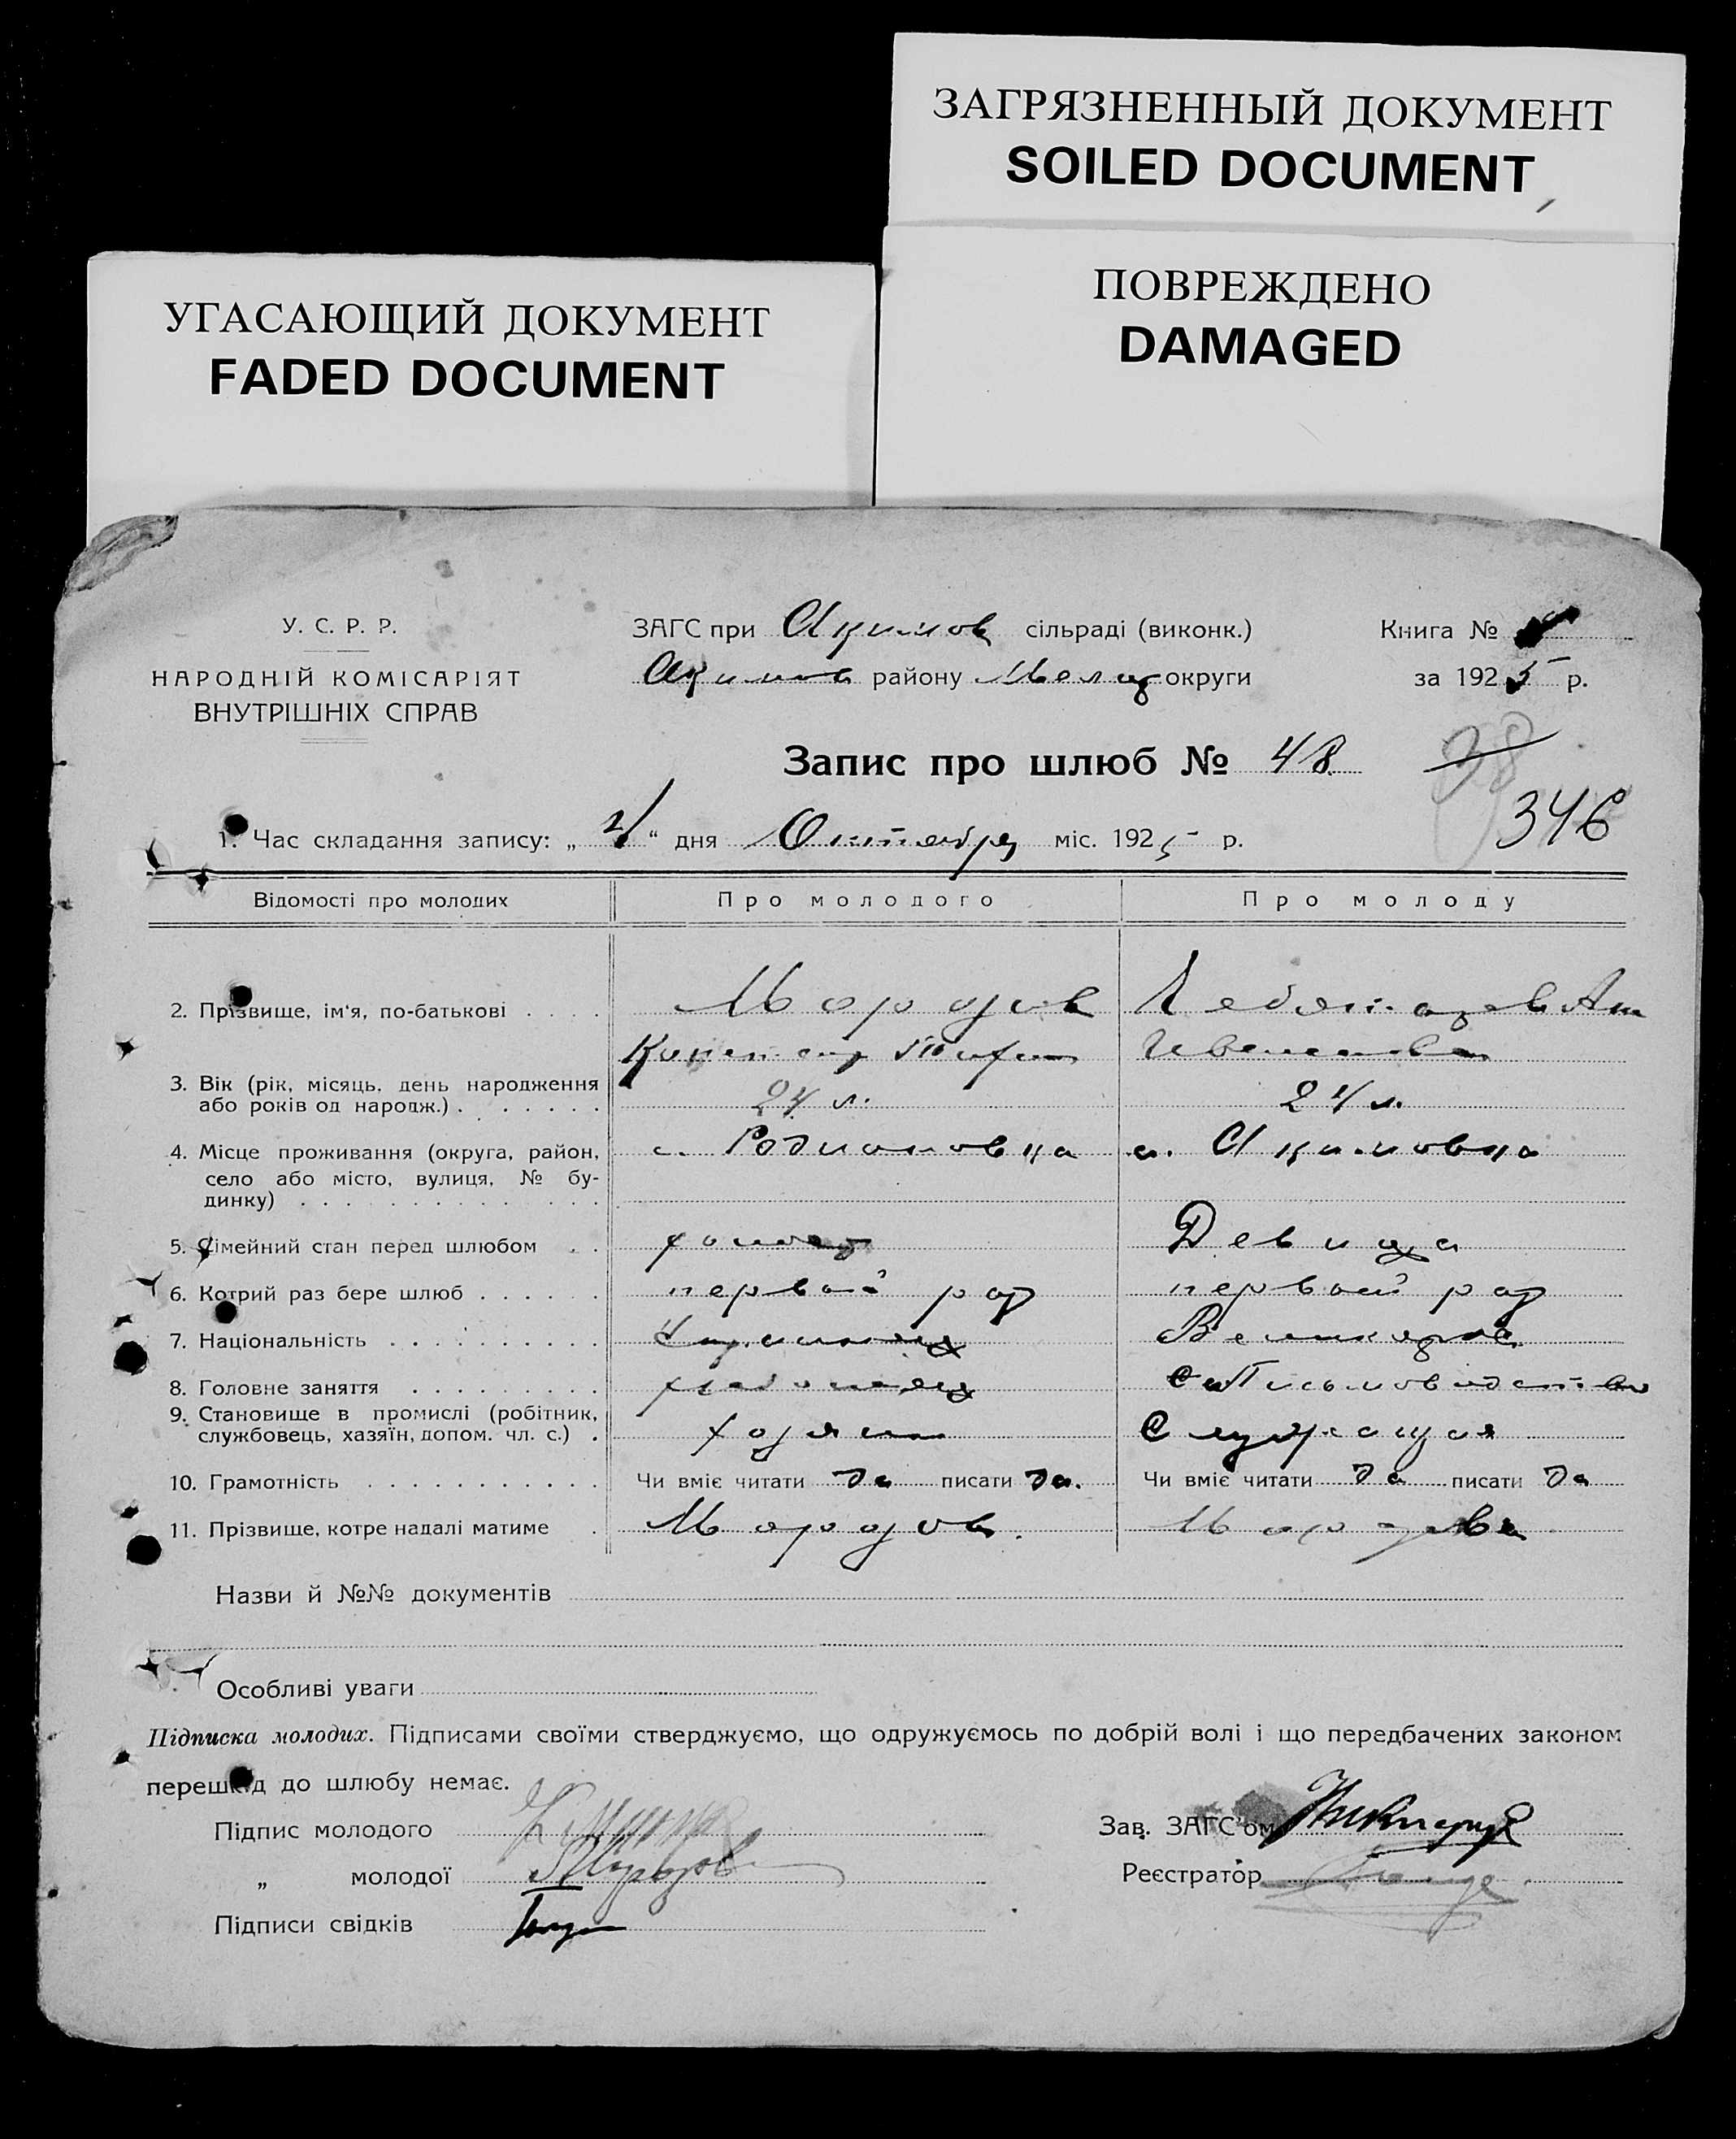 ЗАГРЯЗНЕННЫЙ ДОКУМЕНТ
SOILED DOCUMENT
УГАСАЮЩИЙ ДОКУМЕНТ
FADED DOCUMENT
ПОВРЕЖДЕНО
DAMAGED
У. С. Р. Р.
НАРОДНІЙ КОМІСАРІЯТ
ВНУТРІШНІХ СПРАВ
ЗАГС при Акимов сільраді (виконк.)
Акимов району Мелит округи
Книга №
за 1925 р.
Запис про шлюб № 48
346
1. Час складання запису: „ “ дня Октября міс. 1925 р.
Відомості про молодих Про молодого Про молоду
2. Прізвище, ім'я, по-батькові . . . . Морозов
Ивановна
3. Вік (рік, місяць, день народження
або років од народж.) . . . . . . . 24 л. 24 л.
4. Місце проживання (округа, район, с. Родионовка с. Акимовка
село або місто, вулиця, № бу-
динку) . . . . . . . . . . . . . .
5. Сімейний стан перед шлюбом . . холост Девица
6. Котрий раз бере шлюб . . . . . . первый раз первый раз
7. Національність . . . . . . . . . . Украинец Великорос
8. Головне заняття . . . . . . . . . хлебопашец
9. Становище в промислі (робітник,
службовець, хазяїн, допом. чл. с.) . хозяин Служащая
10. Грамотність . . . . . . . . . . . Чи вміє читати да писати да. Чи вміє читати да писати да
11. Прізвище, котре надалі матиме . Морозов. Морозова
Назви й №№ документів
Особливі уваги
Підписка молодих. Підписами своїми стверджуємо, що одружуємось по добрій волі і що передбачених законом
перешкод до шлюбу немає.
Підпис молодого
„ молодої
Підписи свідків
Зав. ЗАГС'ом
Реєстратор